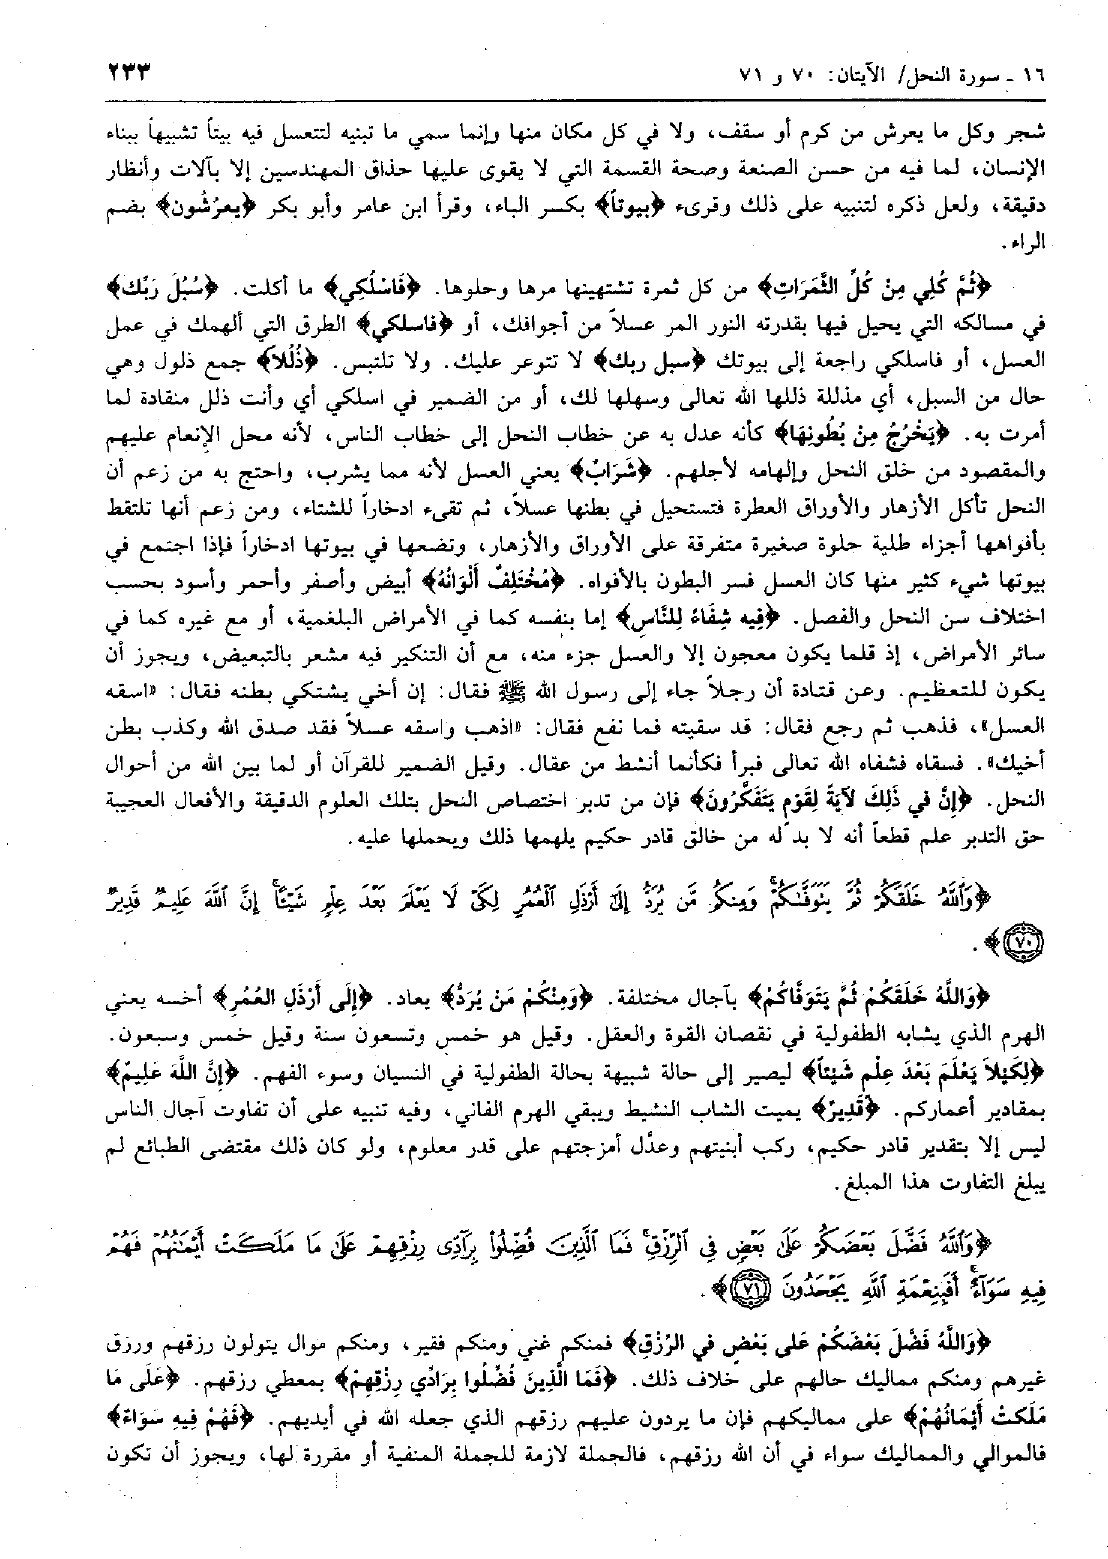 ١٦ ـ سورة النحل/ الآيتان: ٧٠ و ٧١
٢٣٣
شجر وكل ما يعرش من كرم أو سقف، ولا في كل مكان منها وإنما سمي ما تبنيه لتتعسل فيه بيتاً تشبيهاً ببناء
الإنسان، لما فيه من حسن الصنعة وصحة القسمة التي لا يقوى عليها حذاق المهندسين إلا بآلات وأنظار
دقيقة، ولعل ذكره لتنبيه على ذلك وقرىء ﴿بيوتاً﴾ بكسر الباء، وقرأ ابن عامر وأبو بكر ﴿يعرُشون﴾ بضم
الراء.
﴿ثُمَّ كُلِي مِنْ كُلِّ الثَّمَرَاتِ﴾ من كل ثمرة تشتهينها مرها وحلوها. ﴿فَاسْلُكِي﴾ ما أكلت. ﴿سُبُلَ رَبِّك﴾
في مسالكه التي يحيل فيها بقدرته النور المر عسلاً من أجوافك، أو ﴿فاسلكي﴾ الطرق التي ألهمك في عمل
العسل، أو فاسلكي راجعة إلى بيوتك ﴿سبل ربك﴾ لا تتوعر عليك. ولا تلتبس. ﴿ذُلُلاً﴾ جمع ذلول وهي
حال من السبل، أي مذللة ذللها الله تعالى وسهلها لك، أو من الضمير في اسلكي أي وأنت ذلل منقادة لما
أمرت به. ﴿يَخْرُجُ مِنْ بُطُونِهَا﴾ كأنه عدل به عن خطاب النحل إلى خطاب الناس، لأنه محل الإنعام عليهم
والمقصود من خلق النحل وإلهامه لأجلهم. ﴿شَرَابٌ﴾ يعني العسل لأنه مما يشرب، واحتج به من زعم أن
النحل تأكل الأزهار والأوراق العطرة فتستحيل في بطنها عسلاً، ثم تقىء ادخاراً للشتاء، ومن زعم أنها تلتقط
بأفواهها أجزاء طلية حلوة صغيرة متفرقة على الأوراق والأزهار، وتضعها في بيوتها ادخاراً فإذا اجتمع في
بيوتها شيء كثير منها كان العسل فسر البطون بالأفواه. ﴿مُخْتَلِفٌ أَلْوَانُهُ﴾ أبيض وأصفر وأحمر وأسود بحسب
اختلاف سن النحل والفصل. ﴿فِيه شِفَاءٌ لِلنَّاسِ﴾ إما بنفسه كما في الأمراض البلغمية، أو مع غيره كما في
سائر الأمراض، إذ قلما يكون معجون إلا والعسل جزء منه، مع أن التنكير فيه مشعر بالتبعيض، ويجوز أن
يكون للتعظيم. وعن قتادة أن رجلاً جاء إلى رسول الله ﷺ فقال: إن أخي يشتكي بطنه فقال: «اسقه
العسل»، فذهب ثم رجع فقال: قد سقيته فما نفع فقال: «اذهب واسقه عسلاً فقد صدق الله وكذب بطن
أخيك». فسقاه فشفاه الله تعالى فبرأ فكأنما أنشط من عقال. وقيل الضمير للقرآن أو لما بين الله من أحوال
النحل. ﴿إِنَّ في ذَلِكَ لآيَةً لِقَوْمٍ يَتَفَكَّرُونَ﴾ فإن من تدبر اختصاص النحل بتلك العلوم الدقيقة والأفعال العجيبة
حق التدبر علم قطعاً أنه لا بد له من خالق قادر حكيم يلهمها ذلك ويحملها عليه.
﴿وَٱللَّهُ خَلَقَكُمْ ثُمَّ يَتَوَفَّىٰكُمْ ۚ وَمِنكُم مَّن يُرَدُّ إِلَىٰٓ أَرْذَلِ ٱلْعُمُرِ لِكَىْ لَا يَعْلَمَ بَعْدَ عِلْمٍ شَيْـًٔا ۚ إِنَّ ٱللَّهَ عَلِيمٌ قَدِيرٌ
٧٠﴾.
﴿وَاللَّهُ خَلَقَكُمْ ثُمَّ يَتَوَفَّاكُمْ﴾ بآجال مختلفة. ﴿وَمِنْكُمْ مَنْ يُرَدُّ﴾ يعاد. ﴿إِلَى أَرْذَلِ العُمُرِ﴾ أخسه يعني
الهرم الذي يشابه الطفولية في نقصان القوة والعقل. وقيل هو خمس وتسعون سنة وقيل خمس وسبعون.
﴿لِكَيْلاَ يَعْلَمَ بَعْدَ عِلْمٍ شَيْئاً﴾ ليصير إلى حالة شبيهة بحالة الطفولية في النسيان وسوء الفهم. ﴿إِنَّ اللَّهَ عَلِيمٌ﴾
بمقادير أعماركم. ﴿قَدِيرٌ﴾ يميت الشاب النشيط ويبقي الهرم الفاني، وفيه تنبيه على أن تفاوت آجال الناس
ليس إلا بتقدير قادر حكيم، ركب أبنيتهم وعدَّل أمزجتهم على قدر معلوم، ولو كان ذلك مقتضى الطبائع لم
يبلغ التفاوت هذا المبلغ.
﴿وَٱللَّهُ فَضَّلَ بَعْضَكُمْ عَلَىٰ بَعْضٍ فِى ٱلرِّزْقِ ۚ فَمَا ٱلَّذِينَ فُضِّلُوا۟ بِرَآدِّى رِزْقِهِمْ عَلَىٰ مَا مَلَكَتْ أَيْمَـٰنُهُمْ فَهُمْ
فِيهِ سَوَآءٌ ۚ أَفَبِنِعْمَةِ ٱللَّهِ يَجْحَدُونَ ٧١﴾.
﴿وَاللَّهُ فَضَّلَ بَعْضَكُمْ عَلى بَعْضٍ في الرِّزْقِ﴾ فمنكم غني ومنكم فقير، ومنكم موال يتولون رزقهم ورزق
غيرهم ومنكم مماليك حالهم على خلاف ذلك. ﴿فَمَا الَّذِينَ فُضِّلُوا بِرَادِّي رِزْقِهِمْ﴾ بمعطي رزقهم. ﴿عَلَى مَا
مَلَكتْ أَيْمَانُهُمْ﴾ على مماليكهم فإن ما يردون عليهم رزقهم الذي جعله الله في أيديهم. ﴿فَهُمْ فِيهِ سَوَاءٌ﴾
فالموالي والمماليك سواء في أن الله رزقهم، فالجملة لازمة للجملة المنفية أو مقررة لها، ويجوز أن تكون